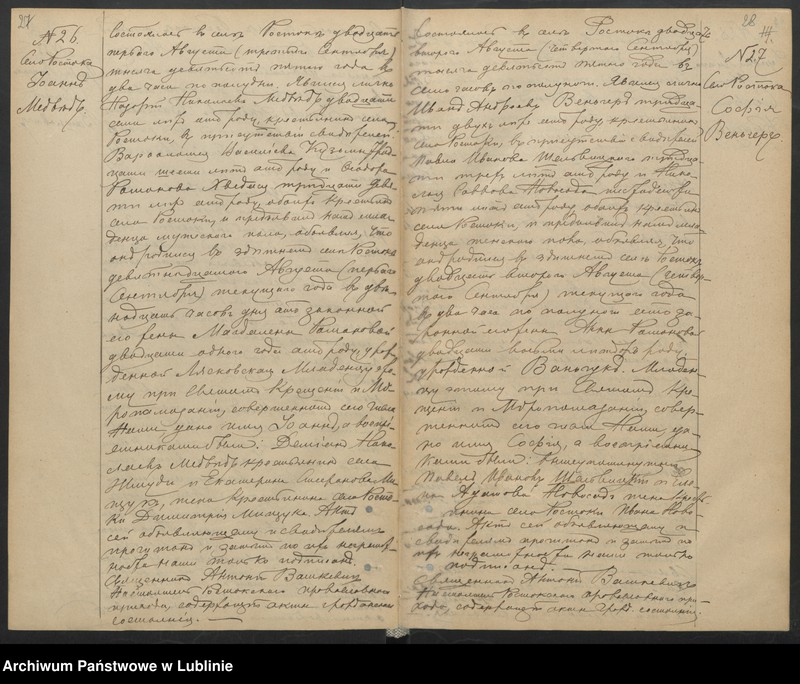 № 26.
Село Ростока
Іоаннъ
Медвѣдь.
Состоялось въ селѣ Ростокѣ двадцать
перваго Августа (третьяго Сентября)
тысяча девятьсотъ пятаго года въ
два часа по полудни. Явился лично
Николаевъ Медвѣдь двадцати
семи лѣтъ отъ роду, крестьянинъ села
Ростоки, въ присутствіи свидѣтелей
Варѳоломея Васильева
шести лѣтъ отъ роду и Ѳеодора
Романова тридцати девя-
ти лѣтъ отъ роду, обоихъ крестьянъ
села Ростоки, и предъявилъ намъ мла-
денца мужескаго пола, объявляя, что
онъ родился въ здѣшнемъ селѣ Ростокѣ
девятнадцатаго Августа (перваго
Сентября) текущаго года въ двѣ-
надцать часовъ дня отъ законной
его жены Магдалины Романовой
двадцати одного года отъ роду, урож-
денной Лясковской. Младенцу это-
му при Святомъ Крещеніи и Мѵ-
ропомазаніи, совершенномъ сего числа
Нами дано имя Іоаннъ, а воспрі-
емниками были: Даміанъ Нико-
лаевъ Медвѣдь крестьянинъ села
Жмуди и Екатерина
жена крестьянина села Росто-
ки Димитрія Мищука. Актъ
сей объявляющему и свидѣтелямъ
прочитанъ и затѣмъ по ихъ неграмот-
ности Нами только подписанъ.
Священникъ Антоній Вашкевичъ
Настоятель Ростокскаго православнаго
прихода, содержащій акты гражданскаго
состоянія.
28
№ 27
Село Ростока
Софія
Венгеръ
Состоялось въ селѣ Ростока двадцать
второго Августа (четвертаго Сентября)
тысяча девятьсотъ пятаго года въ
часовъ по полудни. Явился лично
Иванъ Андреевъ Венгеръ тридца-
ти двухъ лѣтъ отъ роду крестьянинъ
села Ростоки, въ присутствіи свидѣтелей
Павла Иванова тридца-
ти трехъ лѣтъ отъ роду и Нико-
лая Новосада пятидесяти
пяти лѣтъ отъ роду обоихъ крестьянъ
села Ростоки, и предъявилъ намъ мла-
денца женскаго пола, объявляя, что
онъ родился въ здѣшнемъ селѣ Ростокѣ
двадцать второго Августа (четвер-
таго Сентября) текущаго года
въ два часа по полуночи отъ за-
конной его жены Анны Романовой
двадцати восьми лѣтъ отъ роду,
урожденной Ваньчукъ. Младен-
цу этому при Святомъ Кре-
щеніи и Мѵропомазаніи, совер-
шенномъ сего числа Нами, да-
но имя Софія, а воспріемни-
ками были: вышеупомянутый
Павелъ Ивановъ и
Новосадъ жена кресть-
янина села Ростоки Ивана Ново-
сада. Актъ сей объявляющему и
свидѣтелямъ прочитанъ и затѣмъ по
ихъ неграмотности нами только
подписанъ.
Священникъ Антоній Вашкевичъ
Настоятель Ростокскаго православнаго при-
хода, содержащій акты гражд. состоянія.
Archiwum Państwowe w Lublinie